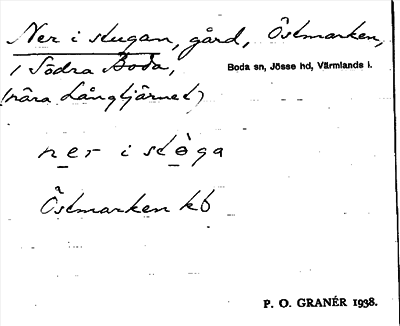 Ner i stugan, gård, Östmarken,
i Södra Boda,
Boda sn, Jösse hd, Värmlands l.
(nära Långtjärnet)
ner i stòga
Östmarken kb
P. O. GRANÉR 1938.